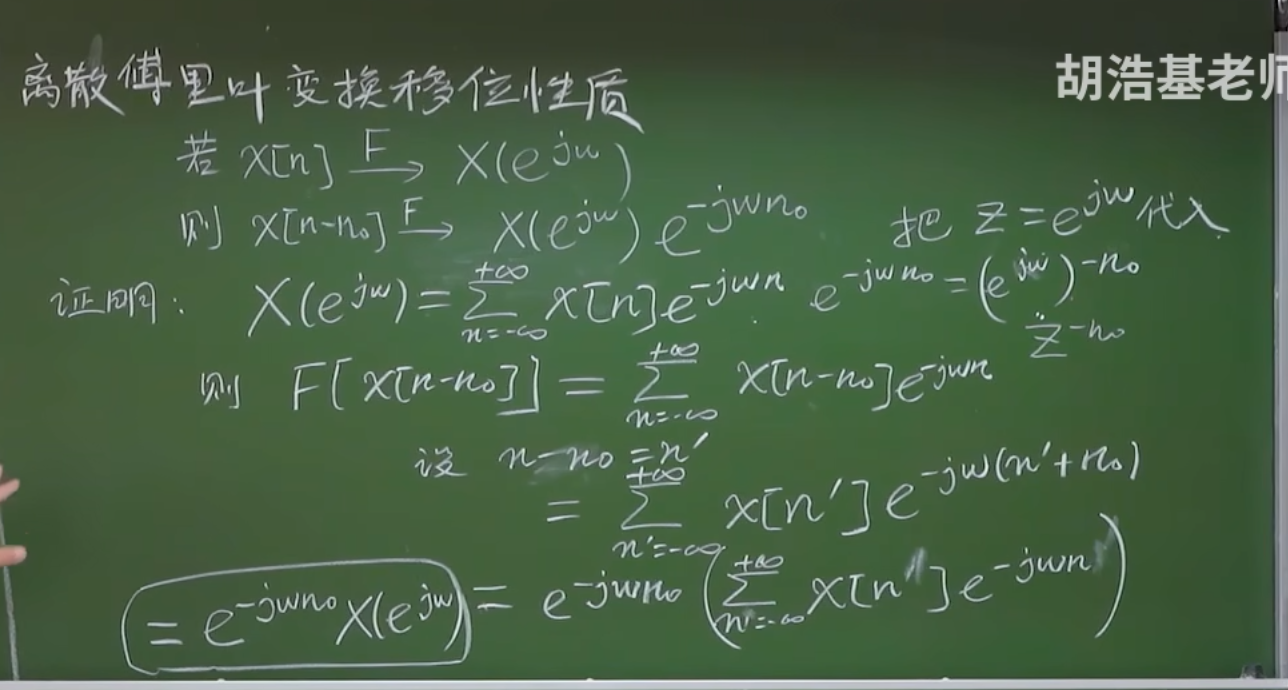 离散傅里叶变换移位性质
胡浩基老师
若 x[n] F→ X(e^{jω})
则 x[n-n₀] F→ X(e^{jω}) e^{-jωn₀} 把 z = e^{jω} 代入
证明: X(e^{jω}) = ∑_{n=-∞}^{+∞} x[n] e^{-jωn} e^{-jωn₀} = (e^{jω})^{-n₀}
z^{-n₀}
则 F[x[n-n₀]] = ∑_{n=-∞}^{+∞} x[n-n₀] e^{-jωn}
设 n-n₀ = n'
= ∑_{n'=-∞}^{+∞} x[n'] e^{-jω(n'+n₀)}
= e^{-jωn₀} X(e^{jω}) = e^{-jωn₀} (∑_{n'=-∞}^{+∞} x[n'] e^{-jωn'})